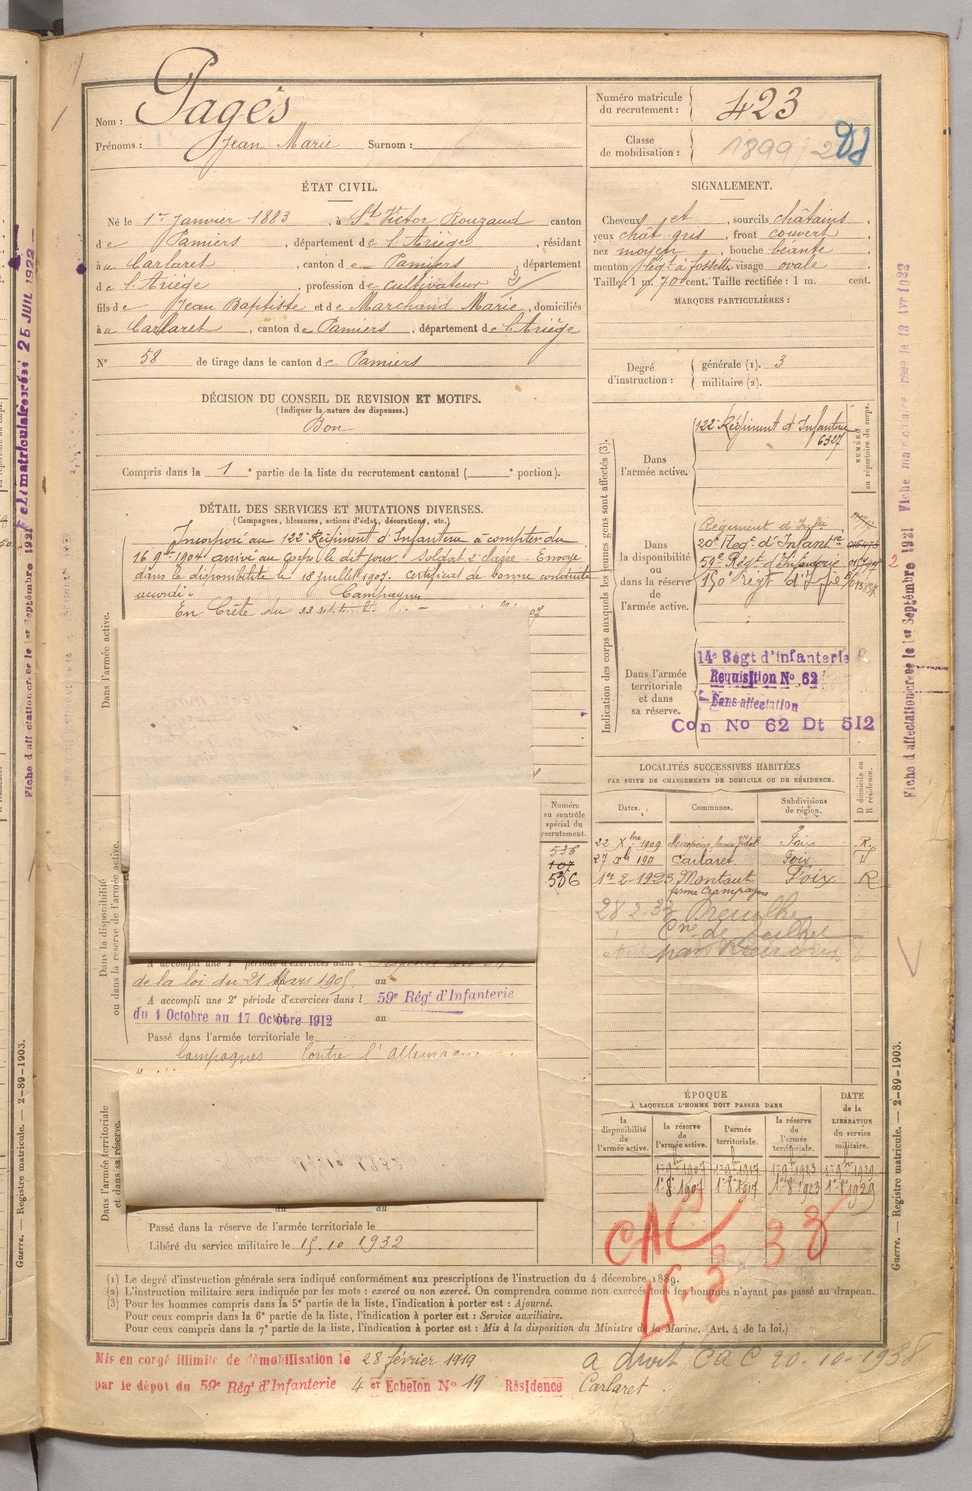 Nom : Pagès
Prénoms : Jean Marie Surnom :
Numéro matricule du recrutement : 423
Classe de mobilisation : 1899
ÉTAT CIVIL.
Né le 1er Janvier 1883, à St Victor Rouzaud canton
de Pamiers, département de l'Ariège, résidant
à Carlaret, canton de Pamiers département
de l'Ariège, profession de cultivateur
fils de Jean Baptiste et de Marchand Marie, domiciliés
à Carlaret, canton de Pamiers, département de l'Ariège
N° 58 de tirage dans le canton de Pamiers
SIGNALEMENT.
Cheveux et, sourcils châtains,
yeux chât. gris, front couvert,
nez moyen, bouche béante,
menton à fossette visage ovale,
Taille : 1 m. 70 cent. Taille rectifiée : 1 m. cent.
MARQUES PARTICULIÈRES :
Degré d'instruction : générale (1). 3
militaire (2).
DÉCISION DU CONSEIL DE REVISION ET MOTIFS.
(Indiquer la nature des dispenses.)
Bon
Compris dans la 1e partie de la liste du recrutement cantonal ( e portion).
DÉTAIL DES SERVICES ET MUTATIONS DIVERSES.
(Campagnes, blessures, actions d'éclat, décorations, etc.)
Incorporé au 122e Régiment d'Infanterie à compter du
16 9bre 1904 arrivé au corps le dit jour. Soldat 2e classe. Envoyé
dans la disponibilité le 18 juillet 1907. Certificat de bonne conduite
accordé.
Campagnes
En Crète du
Dans l'armée active.
Dans la disponibilité ou dans la réserve de l'armée active.
Dans l'armée territoriale et dans sa réserve.
Indication des corps auxquels les jeunes gens sont affectés (3).
NUMÉRO au répertoire du corps.
Dans l'armée active.
122e Régiment d'Infanterie
6327
Dans la disponibilité ou dans la réserve de l'armée active.
Régiment d'Infie
20e Regt d'Infantie
59e Regt d'Infanterie
Dans l'armée territoriale et dans sa réserve.
14e Régt d'infanterie
Requisition No 62
Sans affectation
Con No 62 Dt 512
Numéro au contrôle spécial du recrutement.
536
107
536
LOCALITÉS SUCCESSIVES HABITÉES
PAR SUITE DE CHANGEMENTS DE DOMICILE OU DE RÉSIDENCE.
Dates. Communes. Subdivisions de région. D domicile ou R résidence.
22 Xbre 1909 Mirepoix Foix R.
27 1911 Carlaret Foix D
1er 2-1923 Montaut Foix R
ferme Crampagne
28 2.33
A accompli une 1e période d'exercices dans l
de la loi du 21 Mars 1905 au
A accompli une 2e période d'exercices dans l 59e Régt d'Infanterie
du 1 Octobre au 17 Octobre 1912 au
Passé dans l'armée territoriale le
Campagnes Contre l'Allemagne
Passé dans la réserve de l'armée territoriale le
Libéré du service militaire le 15.10 1932
ÉPOQUE
À LAQUELLE L'HOMME DOIT PASSER DANS
la disponibilité de l'armée active. la réserve de l'armée active. l'armée territoriale. la réserve de l'armée territoriale.
DATE de la LIBÉRATION du service militaire.
CAC
15.3.38
(1) Le degré d'instruction générale sera indiqué conformément aux prescriptions de l'instruction du 4 décembre 1889.
(2) L'instruction militaire sera indiquée par les mots : exercé ou non exercé. On comprendra comme non exercés tous les hommes n'ayant pas passé au drapeau.
(3) Pour les hommes compris dans la 5e partie de la liste, l'indication à porter est : Ajourné.
Pour ceux compris dans la 6e partie de la liste, l'indication à porter est : Service auxiliaire.
Pour ceux compris dans la 7e partie de la liste, l'indication à porter est : Mis à la disposition du Ministre de la Marine. (Art. 4 de la loi.)
Mis en congé illimité de démobilisation le 28 février 1919
par le dépôt du 59e Régt d'Infanterie 4 er Echelon No 19 Résidence Carlaret.
a droit CAC 20-10-1938
Guerre. — Registre matricule. — 2-89-1903.
Guerre. — Registre matricule. — 2-89-1903.
Fiche d'affectation créée le 1er Septembre 1921